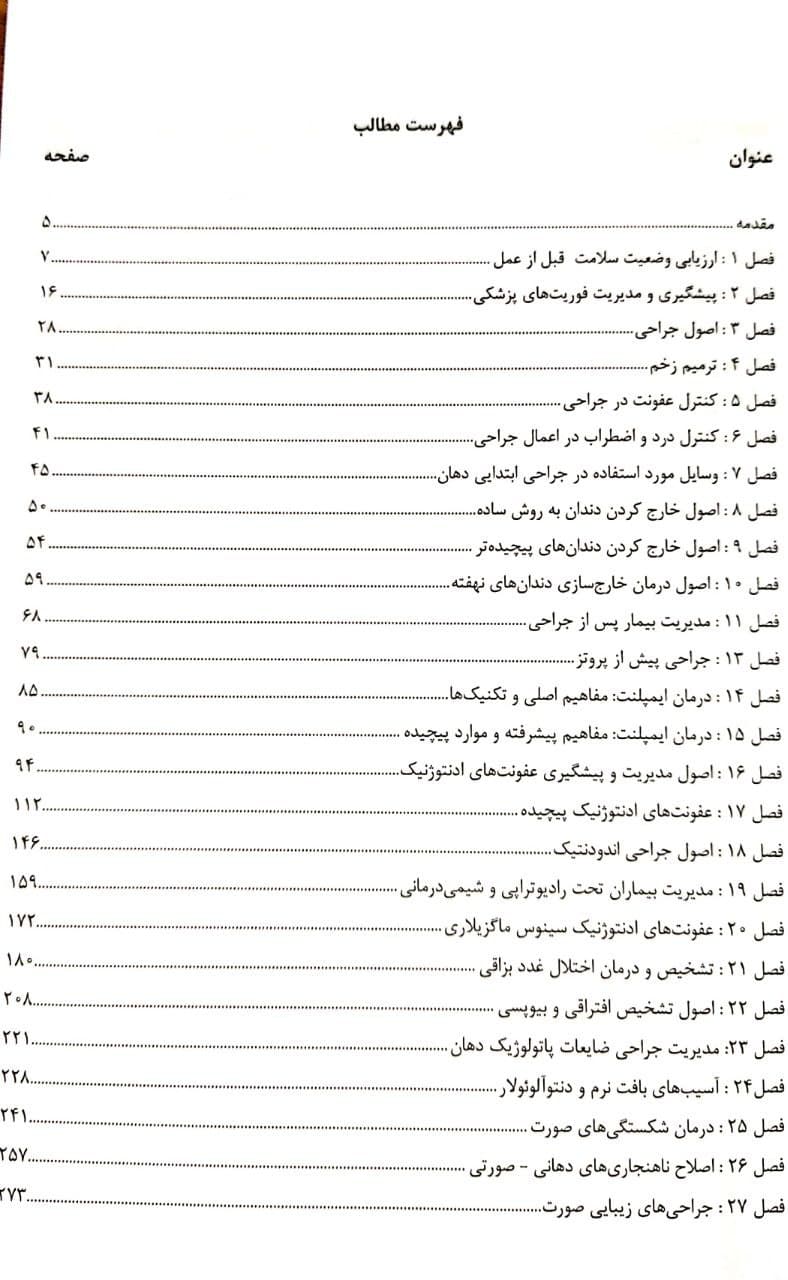 فهرست مطالب
عنوان صفحه
مقدمه ..... ۵
فصل ۱ : ارزیابی وضعیت سلامت قبل از عمل ..... ۷
فصل ۲ : پیشگیری و مدیریت فوریت‌های پزشکی ..... ۱۶
فصل ۳ : اصول جراحی ..... ۲۸
فصل ۴ : ترمیم زخم ..... ۳۱
فصل ۵ : کنترل عفونت در جراحی ..... ۳۸
فصل ۶ : کنترل درد و اضطراب در اعمال جراحی ..... ۴۱
فصل ۷ : وسایل مورد استفاده در جراحی ابتدایی دهان ..... ۴۵
فصل ۸ : اصول خارج کردن دندان به روش ساده ..... ۵۰
فصل ۹ : اصول خارج کردن دندان‌های پیچیده‌تر ..... ۵۴
فصل ۱۰ : اصول درمان خارج‌سازی دندان‌های نهفته ..... ۵۹
فصل ۱۱ : مدیریت بیمار پس از جراحی ..... ۶۸
فصل ۱۳ : جراحی پیش از پروتز ..... ۷۹
فصل ۱۴ : درمان ایمپلنت: مفاهیم اصلی و تکنیک‌ها ..... ۸۵
فصل ۱۵ : درمان ایمپلنت: مفاهیم پیشرفته و موارد پیچیده ..... ۹۰
فصل ۱۶ : اصول مدیریت و پیشگیری عفونت‌های ادنتوژنیک ..... ۹۴
فصل ۱۷ : عفونت‌های ادنتوژنیک پیچیده ..... ۱۱۲
فصل ۱۸ : اصول جراحی اندودنتیک ..... ۱۴۶
فصل ۱۹ : مدیریت بیماران تحت رادیوتراپی و شیمی‌درمانی ..... ۱۵۹
فصل ۲۰ : عفونت‌های ادنتوژنیک سینوس ماگزیلاری ..... ۱۷۲
فصل ۲۱ : تشخیص و درمان اختلال غدد بزاقی ..... ۱۸۰
فصل ۲۲ : اصول تشخیص افتراقی و بیوپسی ..... ۲۰۸
فصل ۲۳: مدیریت جراحی ضایعات پاتولوژیک دهان ..... ۲۲۱
فصل۲۴ : آسیب‌های بافت نرم و دنتوآلوئولار ..... ۲۲۸
فصل ۲۵ : درمان شکستگی‌های صورت ..... ۲۴۱
فصل ۲۶ : اصلاح ناهنجاری‌های دهانی - صورتی ..... ۲۵۷
فصل ۲۷ : جراحی‌های زیبایی صورت ..... ۲۷۳